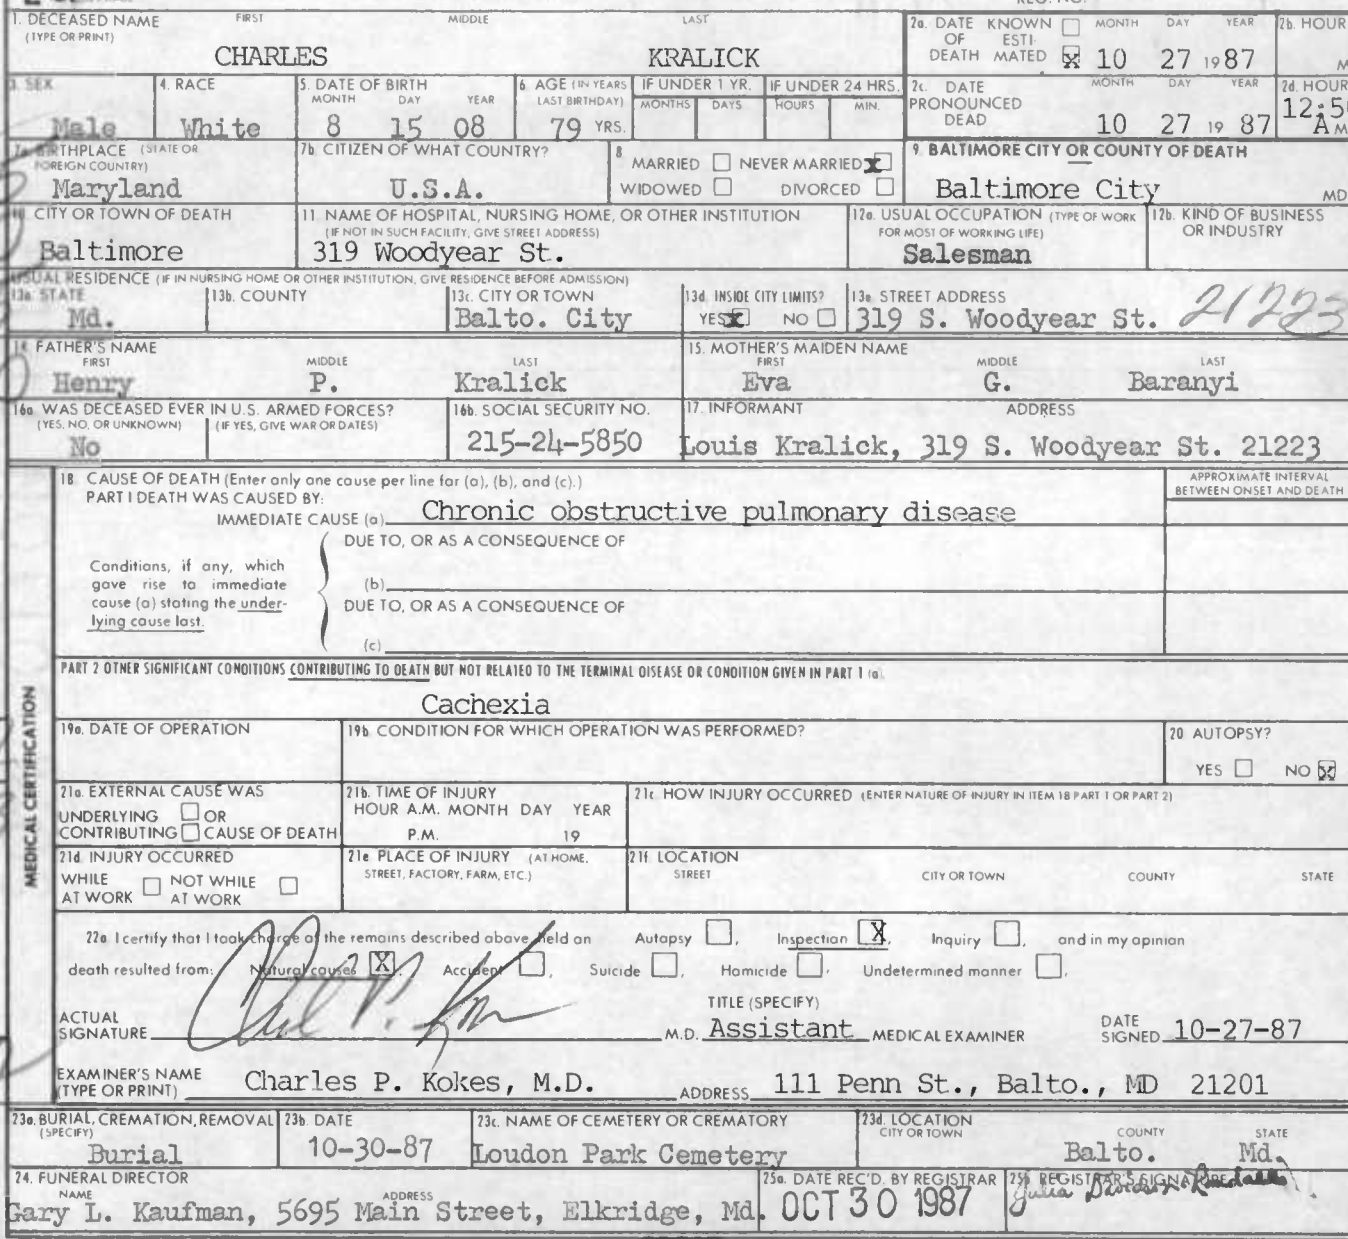 REG. NO.
1. DECEASED NAME FIRST MIDDLE LAST
(TYPE OR PRINT)
CHARLES KRALICK
2a. DATE KNOWN ☐ MONTH DAY YEAR
OF ESTI-
DEATH MATED ☒ 10 27 19 87
2b. HOUR
M
3. SEX
Male
4. RACE
White
5. DATE OF BIRTH
MONTH DAY YEAR
8 15 08
6. AGE (IN YEARS
LAST BIRTHDAY)
79 YRS.
IF UNDER 1 YR.
MONTHS DAYS
IF UNDER 24 HRS.
HOURS MIN.
2c. DATE MONTH DAY YEAR
PRONOUNCED
DEAD
10 27 19 87
2d. HOUR
12:5
A M
7a. BIRTHPLACE (STATE OR
FOREIGN COUNTRY)
Maryland
7b. CITIZEN OF WHAT COUNTRY?
U.S.A.
8
MARRIED ☐ NEVER MARRIED ☒
WIDOWED ☐ DIVORCED ☐
9. BALTIMORE CITY OR COUNTY OF DEATH
Baltimore City MD
10. CITY OR TOWN OF DEATH
Baltimore
11. NAME OF HOSPITAL, NURSING HOME, OR OTHER INSTITUTION
(IF NOT IN SUCH FACILITY, GIVE STREET ADDRESS)
319 Woodyear St.
12a. USUAL OCCUPATION (TYPE OF WORK
FOR MOST OF WORKING LIFE)
Salesman
12b. KIND OF BUSINESS
OR INDUSTRY
USUAL RESIDENCE (IF IN NURSING HOME OR OTHER INSTITUTION, GIVE RESIDENCE BEFORE ADMISSION)
13a. STATE
Md.
13b. COUNTY
13c. CITY OR TOWN
Balto. City
13d. INSIDE CITY LIMITS?
YES ☒ NO ☐
13e. STREET ADDRESS
319 S. Woodyear St. 21223
14. FATHER'S NAME
FIRST MIDDLE LAST
Henry P. Kralick
15. MOTHER'S MAIDEN NAME
FIRST MIDDLE LAST
Eva G. Baranyi
16a. WAS DECEASED EVER IN U.S. ARMED FORCES?
(YES, NO, OR UNKNOWN) (IF YES, GIVE WAR OR DATES)
No
16b. SOCIAL SECURITY NO.
215-24-5850
17. INFORMANT ADDRESS
Louis Kralick, 319 S. Woodyear St. 21223
MEDICAL CERTIFICATION
18 CAUSE OF DEATH (Enter only one cause per line for (a), (b), and (c).)
PART I DEATH WAS CAUSED BY:
IMMEDIATE CAUSE (a) Chronic obstructive pulmonary disease
APPROXIMATE INTERVAL
BETWEEN ONSET AND DEATH
DUE TO, OR AS A CONSEQUENCE OF
Conditions, if any, which
gave rise to immediate
cause (a) stating the under-
lying cause last.
(b)
DUE TO, OR AS A CONSEQUENCE OF
(c)
PART 2 OTHER SIGNIFICANT CONDITIONS CONTRIBUTING TO DEATH BUT NOT RELATED TO THE TERMINAL DISEASE OR CONDITION GIVEN IN PART 1 (a)
Cachexia
19a. DATE OF OPERATION
19b. CONDITION FOR WHICH OPERATION WAS PERFORMED?
20 AUTOPSY?
YES ☐ NO ☒
21a. EXTERNAL CAUSE WAS
UNDERLYING ☐ OR
CONTRIBUTING ☐ CAUSE OF DEATH
21b. TIME OF INJURY
HOUR A.M. MONTH DAY YEAR
P.M. 19
21c. HOW INJURY OCCURRED (ENTER NATURE OF INJURY IN ITEM 18 PART 1 OR PART 2)
21d. INJURY OCCURRED
WHILE ☐ NOT WHILE ☐
AT WORK AT WORK
21e PLACE OF INJURY (AT HOME,
STREET, FACTORY, FARM, ETC.)
21f LOCATION
STREET CITY OR TOWN COUNTY STATE
22a I certify that I took charge of the remains described above, held an Autopsy ☐, Inspection ☒, Inquiry ☐, and in my opinion
death resulted from: Natural causes ☒, Accident ☐, Suicide ☐, Homicide ☐, Undetermined manner ☐.
TITLE (SPECIFY)
ACTUAL
SIGNATURE M.D. Assistant MEDICAL EXAMINER
DATE
SIGNED 10-27-87
EXAMINER'S NAME
(TYPE OR PRINT) Charles P. Kokes, M.D. ADDRESS 111 Penn St., Balto., MD 21201
23a. BURIAL, CREMATION, REMOVAL
(SPECIFY)
Burial
23b. DATE
10-30-87
23c. NAME OF CEMETERY OR CREMATORY
Loudon Park Cemetery
23d. LOCATION
CITY OR TOWN COUNTY STATE
Balto. Md.
24. FUNERAL DIRECTOR
NAME ADDRESS
Gary L. Kaufman, 5695 Main Street, Elkridge, Md.
25a. DATE REC'D. BY REGISTRAR
OCT 30 1987
25b. REGISTRAR'S SIGNATURE
Julia Davidson-Randall